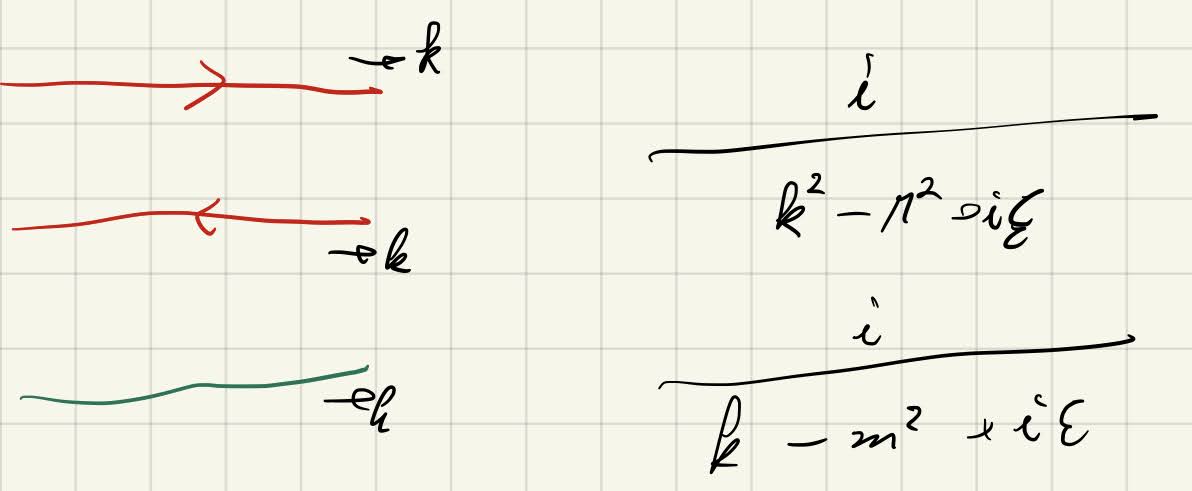 → k
i
k² − μ² + iε
→ k
i
k − m² + iε
→ k